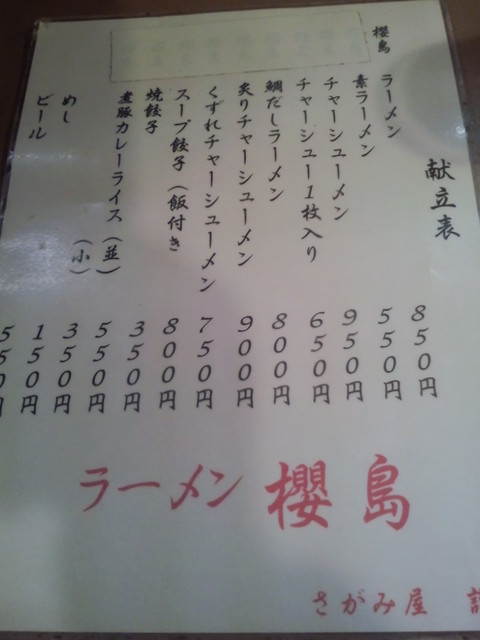 献立表
櫻島 ラーメン 850円
素ラーメン 550円
チャーシューメン 950円
チャーシュー1枚入り 650円
鯛だしラーメン 800円
炙りチャーシューメン 900円
くずれチャーシューメン 750円
スープ餃子(飯付き 800円
焼餃子 350円
煮豚カレーライス(並) 550円
(小) 350円
めし 150円
ビール 550円
ラーメン 櫻島
さがみ屋